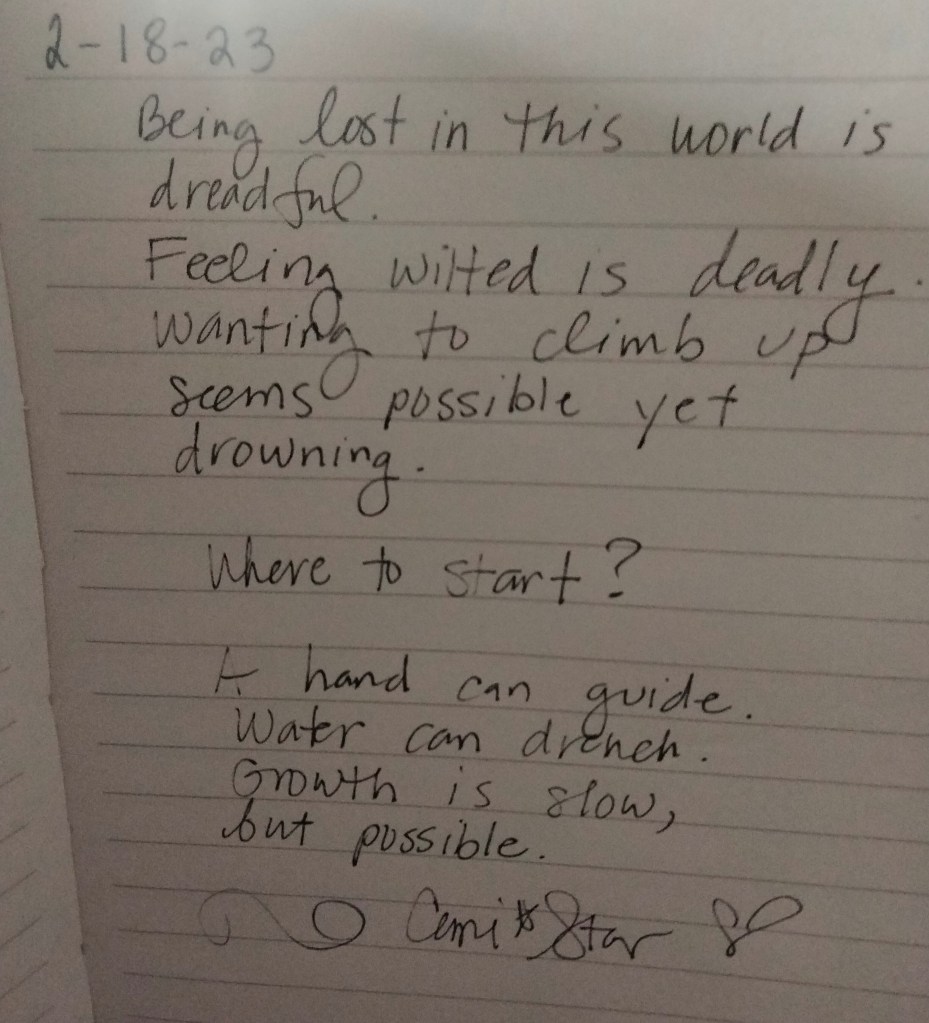 2-18-23
Being lost in this world is
dreadful.
Feeling wilted is deadly.
Wanting to climb up
seems possible yet
drowning.
Where to start?
A hand can guide.
Water can drench.
Growth is slow,
but possible.
Star